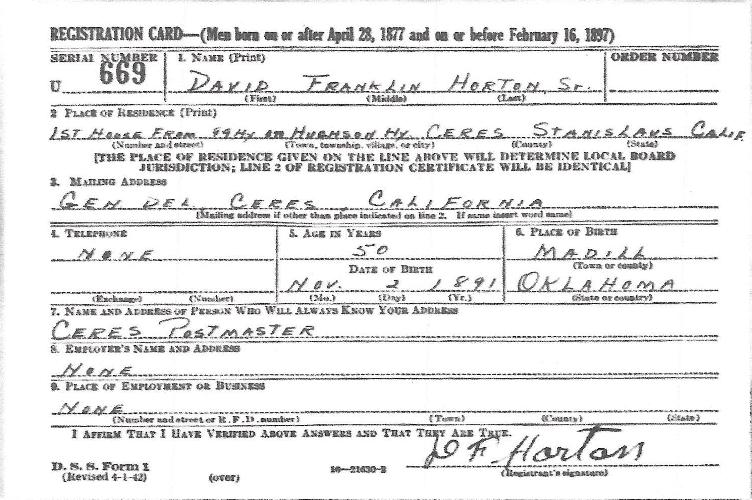 REGISTRATION CARD—(Men born on or after April 28, 1877 and on or before February 16, 1897)
SERIAL NUMBER 1. NAME (Print) ORDER NUMBER
U 669 DAVID FRANKLIN HORTON Sr.
(First) (Middle) (Last)
2 PLACE OF RESIDENCE (Print)
1ST HOUSE FROM 99 HY ON HUGHSON HY CERES STANISLAUS CALIF
(Number and street) (Town, township, village, or city) (County) (State)
[THE PLACE OF RESIDENCE GIVEN ON THE LINE ABOVE WILL DETERMINE LOCAL BOARD
JURISDICTION; LINE 2 OF REGISTRATION CERTIFICATE WILL BE IDENTICAL]
3. MAILING ADDRESS
GEN DEL CERES CALIFORNIA
[Mailing address if other than place indicated on line 2. If same insert word same]
4. TELEPHONE 5. AGE IN YEARS 6. PLACE OF BIRTH
NONE 50 MADILL
DATE OF BIRTH (Town or county)
NOV. 2 1891 OKLAHOMA
(Exchange) (Number) (Mo.) (Day) (Yr.) (State or country)
7. NAME AND ADDRESS OF PERSON WHO WILL ALWAYS KNOW YOUR ADDRESS
CERES POSTMASTER
8. EMPLOYER'S NAME AND ADDRESS
NONE
9. PLACE OF EMPLOYMENT OR BUSINESS
NONE
(Number and street or R. F. D. number) (Town) (County) (State)
I AFFIRM THAT I HAVE VERIFIED ABOVE ANSWERS AND THAT THEY ARE TRUE.
D F. Horton
D. S. S. Form 1 16—21630-2 (Registrant's signature)
(Revised 4-1-42) (over)